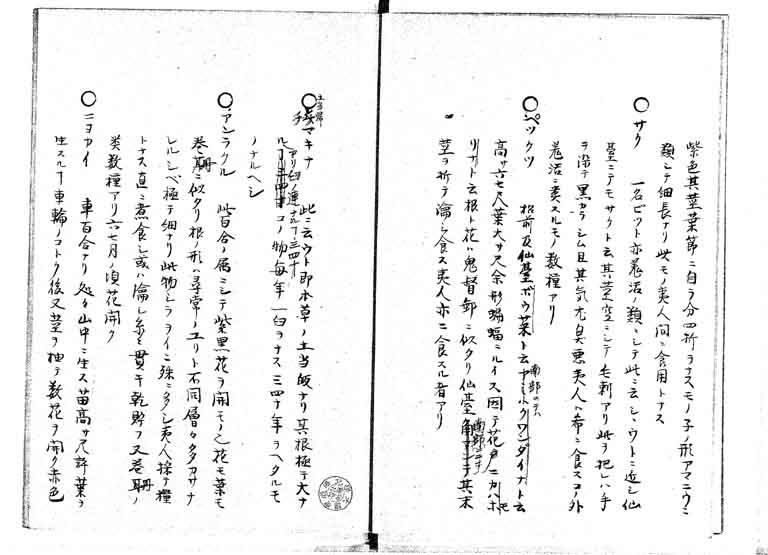 紫色其莖葉節ニ自ラ分四折ヲナスモノ子ノ形アマニウニ
類シテ細長ナリ此モノ夷人間ニ食用トナス
○サク 一名ピクト亦羗活ノ類ニシテ此ニ云シヽウトニ近シ仙
臺ニテモサクト云其莖空ニシテ毛刺アリ此ヲ把レハ手
ヲ染テ黒カラシム且其気尤臭悪夷人ハ希ニ食スコノ外
羗活ニ類スルモノ数種アリ
○ペツクツ 松前及仙臺ボウ菜ト云 南部ノ クワンダイナト云
高サ六七尺葉大サ尺余形蝙蝠ニルイス因テ花戸ニカハホ
リナト云根ト花ハ鬼督郵ニ似タリ仙臺 南部 ニテ其末
莖ヲ折テ瀹シ食ス夷人亦ニ食スル者アリ
○ マキナ 土当帰 此ニ云ウト即本草ノ土当皈ナリ其根極テ大ナ
ルコノ物毎年一臼ヲナス三四十年ヲヘタルモ
ノナルヘシ
○アンラクル 此百合ノ属ニシテ紫黒花ヲ開モノ之花モ葉モ
巻丹ニ似タリ根ノ形ハ尋常ノユリト不同層々タヽカサナ
レルシベ極テ細ナリ此物シラヲイニ殊ニ多シ夷人採テ糧
トナス直ニ煮食シ或ハ瀹シ糸ヲ貫キ乾貯フ又巻丹ノ
類数種アリ六七月ノ頃花開ク
○ニヨカイ 車百合ナリ処々山中ニ生ス苗高サ尺許葉ヲ
生スルヿ車輪ノコトク後又莖ヲ抽テ数花ヲ開ク赤色